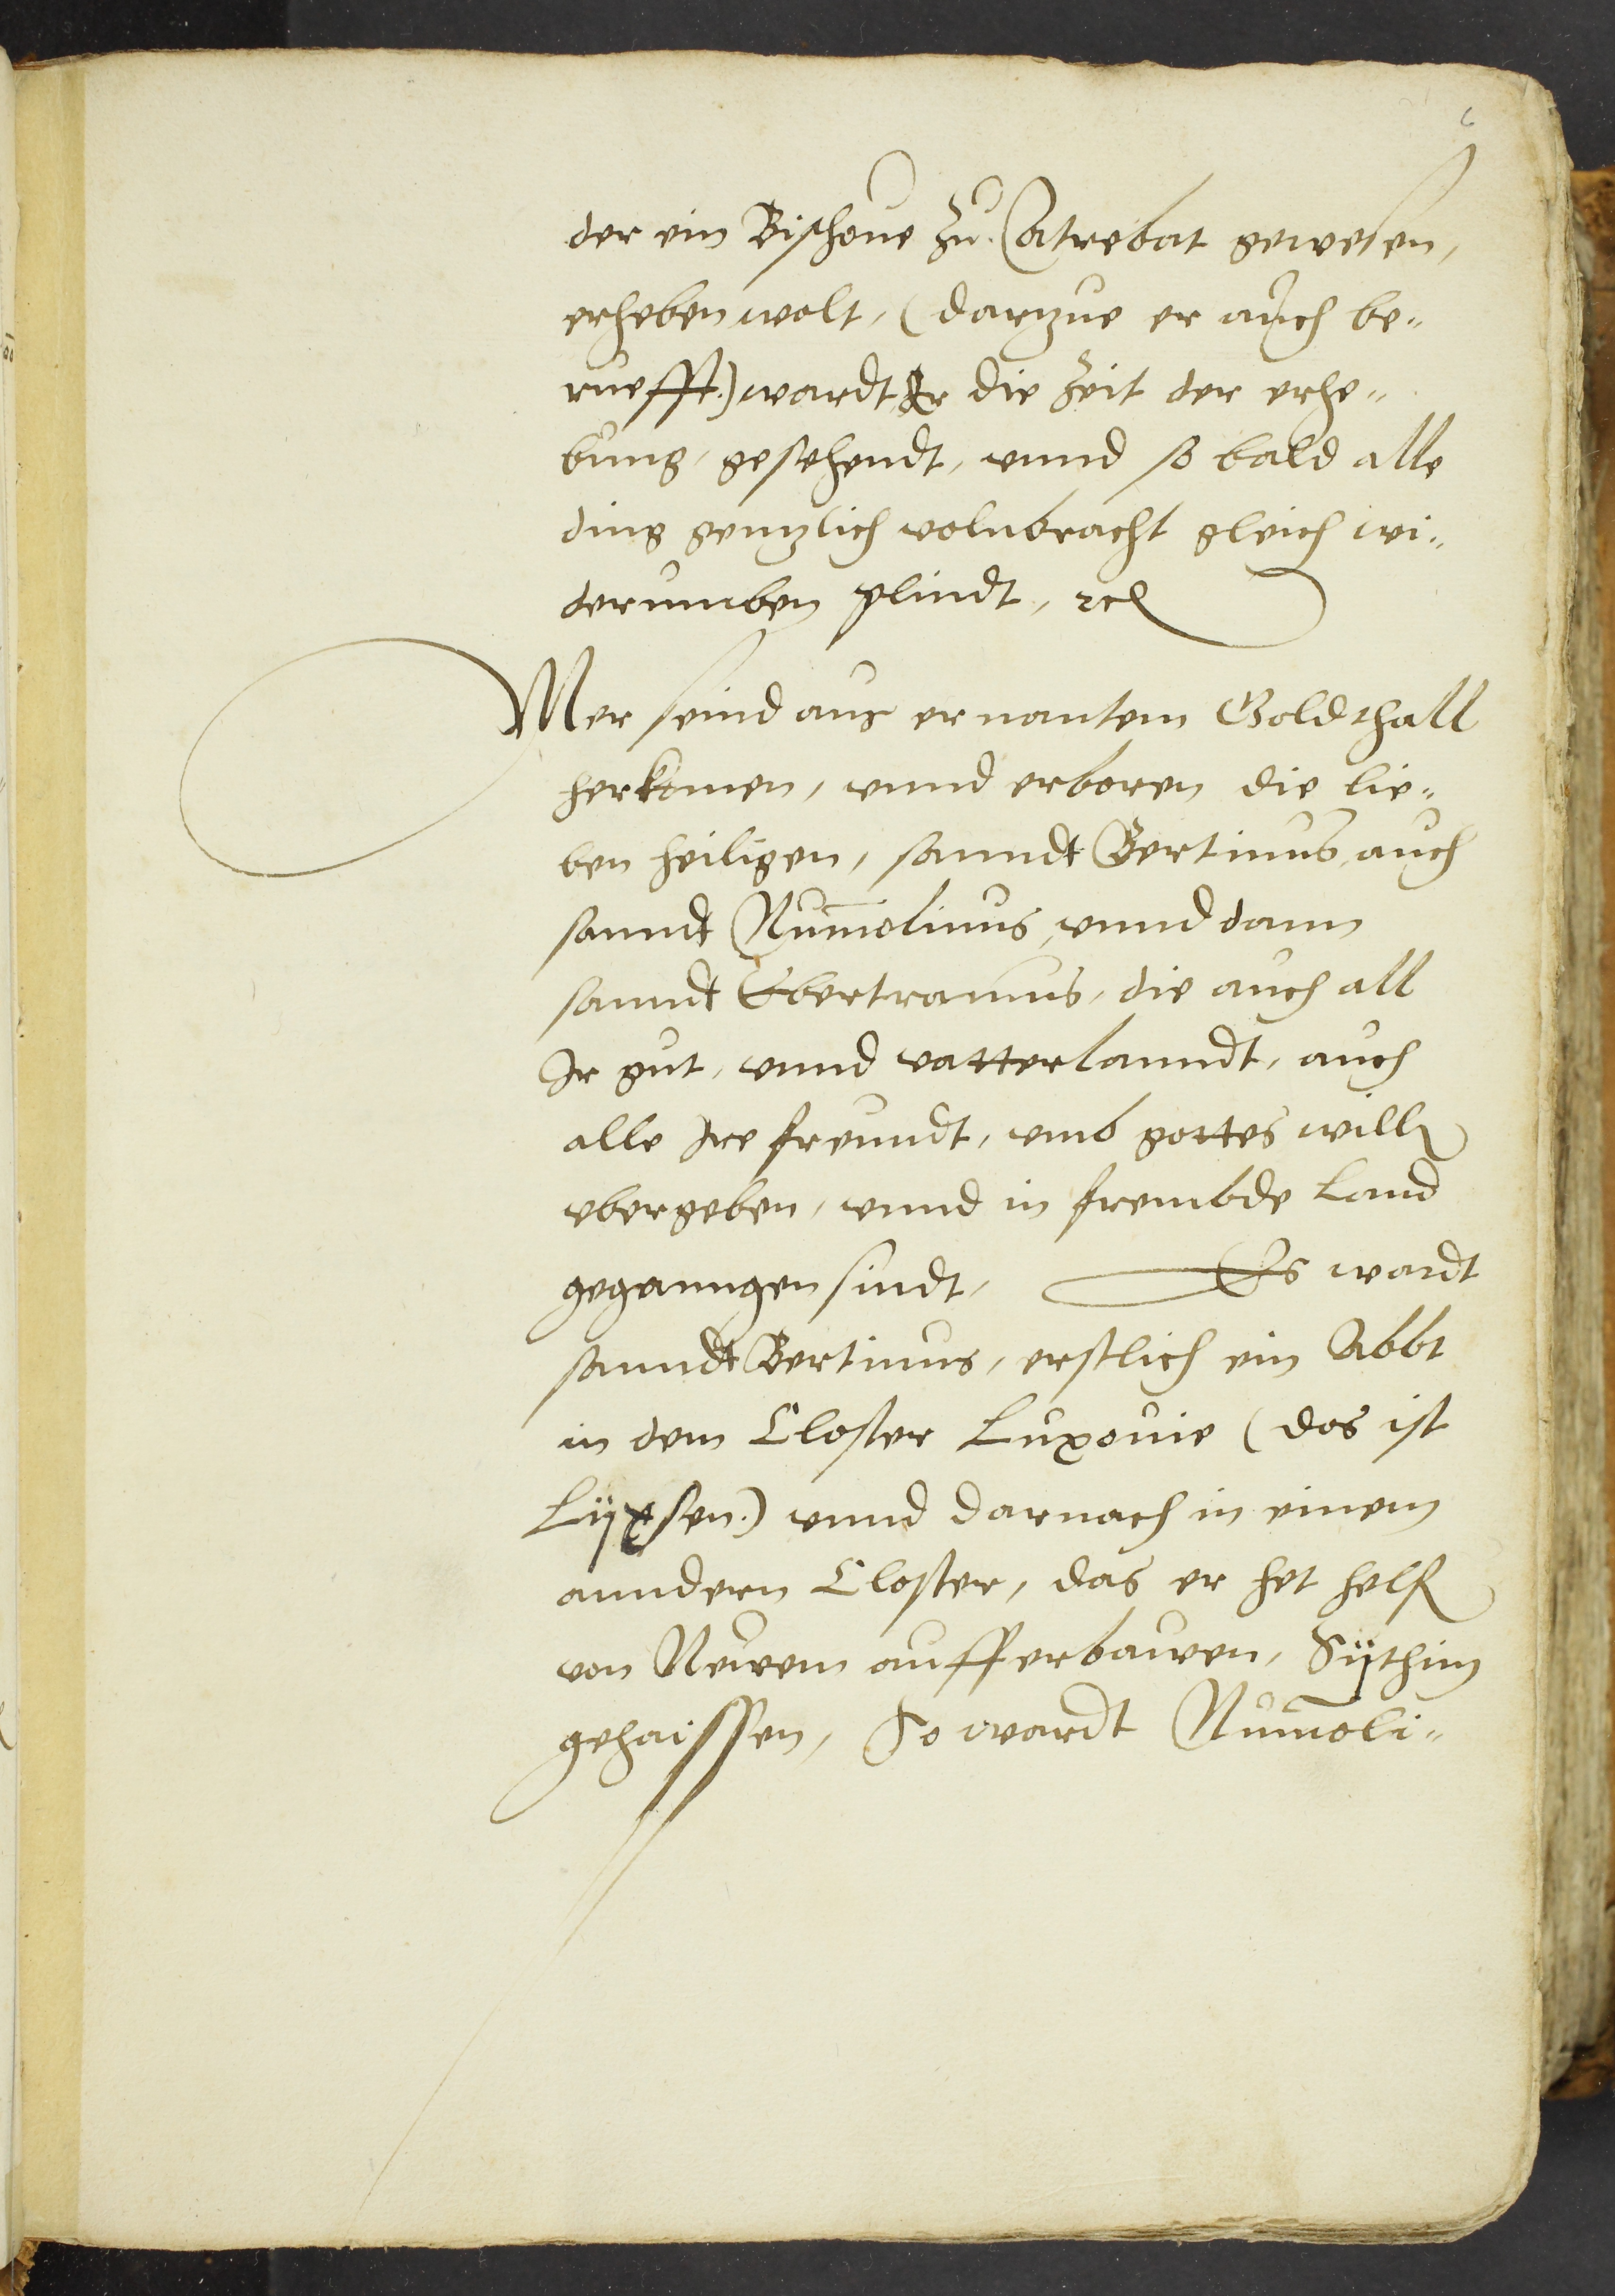 6
der ein Bischoue zu Atrebat gewesen,
erheben wolt, (darzue er auch be-
ruefft.) wardt Er die Zeit der erhe-
bung, gesehendt, vnnd so bald alle
ding genzlich volnbracht gleich wi-
derumben plindt, rc
Mer seind aus ernantem Goldthall
herkomen, vnnd erboren die lie-
ben heiligen, sanndt Bertinus, auch
sanndt Num̄olinus, vnnd dann
sanndt Ebertramus, die auch all
Ir gut, vnnd vatterlanndt, auch
alle Ire freundt, vmb gottes will
vbergeben, vnnd in frembde Land
geganngen sindt, Es wardt
sanndt Bertinus, erstlich ein Abbt
in dem Closter Luxouie (das ist
Lÿxsen.) vnnd darnach in einem
anndern Closter, das er het helf
von Newem aufferbawen, Sÿthin
gehaissen, So wardt Num̄oli-